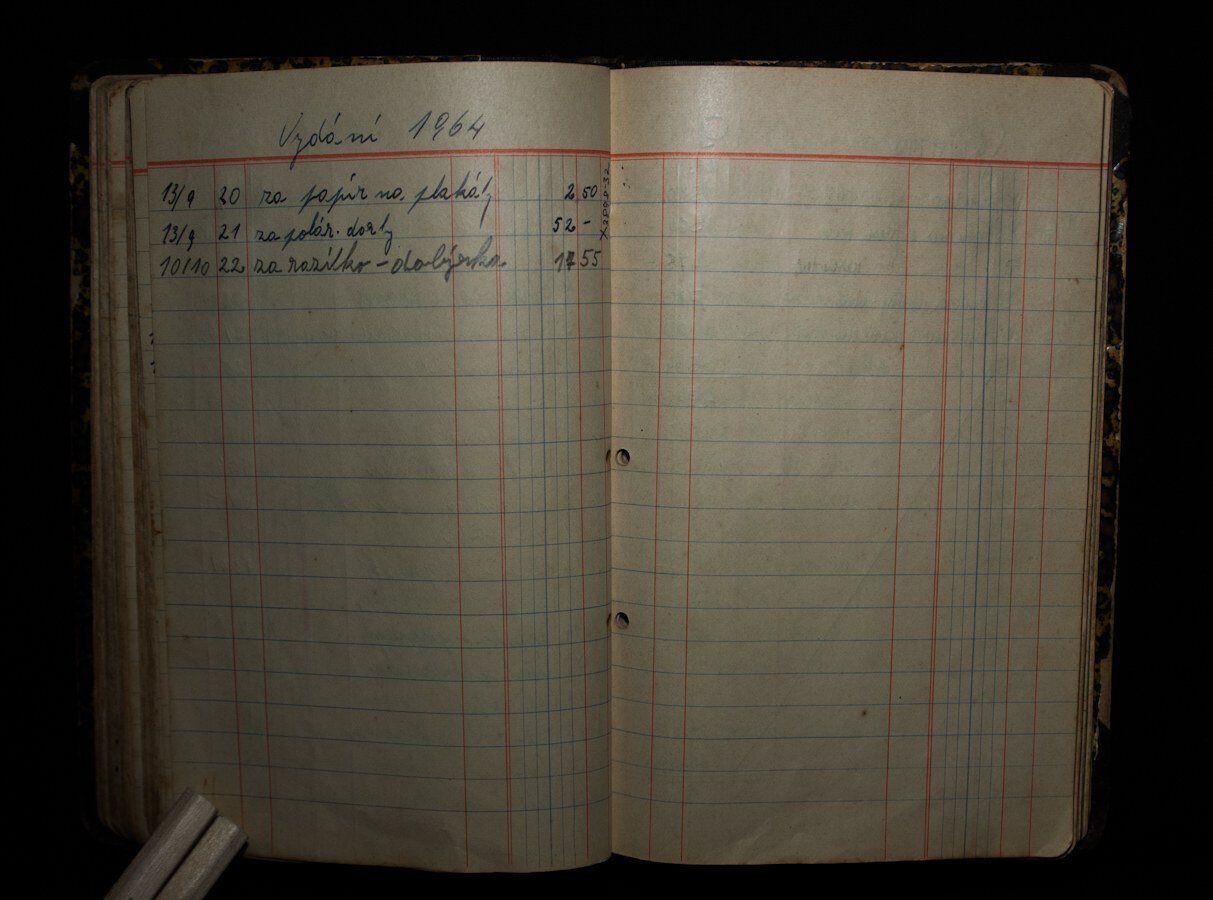 Vydání 1964
13/9 20 za papír na plakáty 2 50
13/9 21 za polár. dorty 52 -
10/10 22 za razítko - dobírka 55